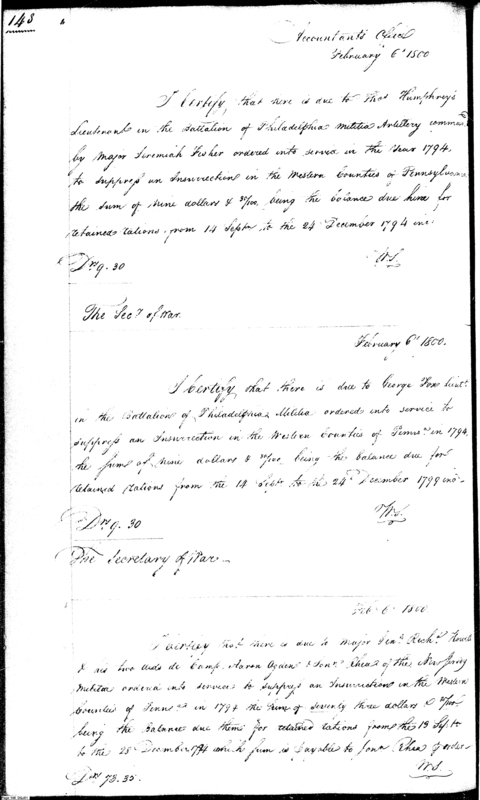 148
Accountants Office
February 6th 1800
I Certify, that there is due to Thos Humphreys
Lieutenant in the Battalion of Philadelphia Militia Artillery commd
by Major Jeremiah Fisher ordered into service in the Year 1794,
to suppress an Insurrection in the Western Counties of Pennsylvania
the sum of Nine dollars & 30/100, being the balance due him for
retained rations from 14 Septr to the 24 December 1794 inc
W.S.
Drs 9.30
The Secy of War.
February 6th 1800.
I Certify, that there is due to George Fox Lieutt
in the Battalion of Philadelphia Militia ordered into service to
suppress an Insurrection in the Western Counties of Penns in 1794,
the sum of Nine dollars & 30/100, being the balance due for
retained rations from the 14 Septr to the 24th December 1799 inc.
W.S.
Drs 9.30
The Secretary of War
Feb 6th 1800
I certify that there is due to Major Genl Richd Howell
& his two Aids de Camp, Aaron Ogden & Jona Rhea of the New Jersey
Militia ordered into service to suppress an Insurrection in the Western
Counties of Penns in 1794 the sum of seventy three dollars & 35/100
being the balance due them for retained rations from the 13 Septr
to the 25 December 1794 which sum is payable to Jona Rhea
W.S.
Drs 73.35.